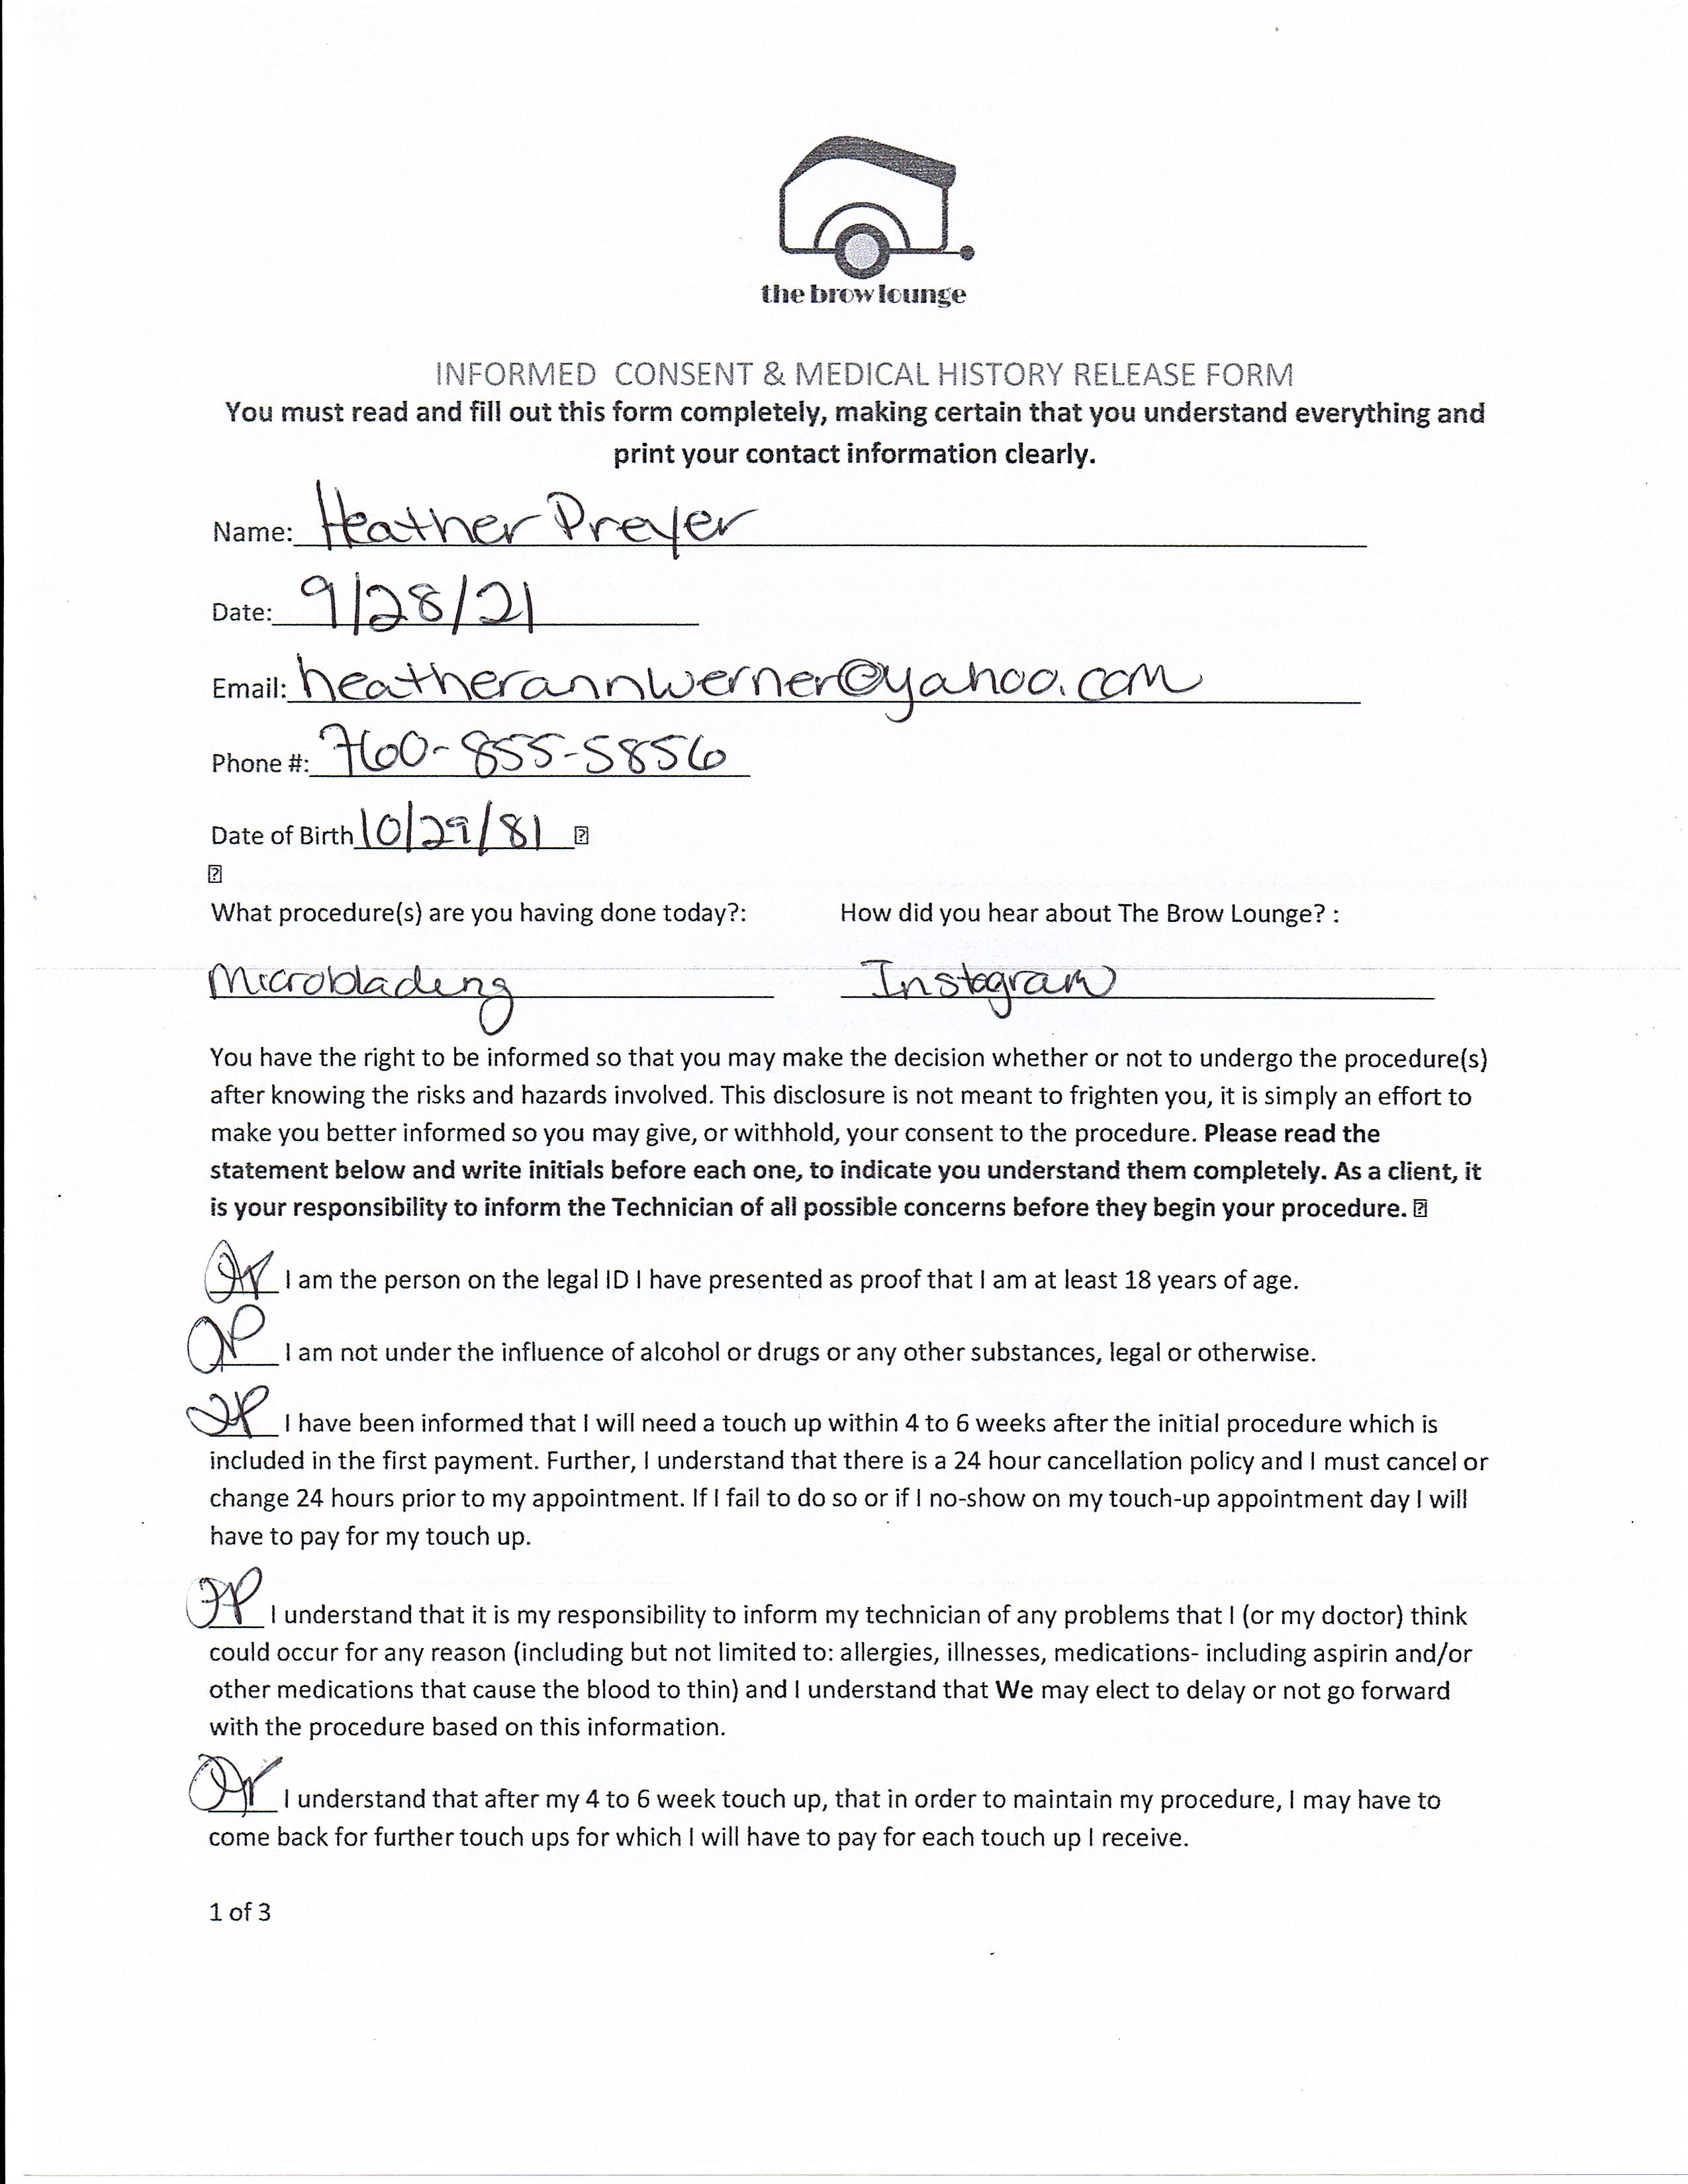 the brow lounge
INFORMED CONSENT & MEDICAL HISTORY RELEASE FORM
You must read and fill out this form completely, making certain that you understand everything and
print your contact information clearly.
Name: Heather Preyer
Date: 9/28/21
Email: heatherannwerner@yahoo.com
Phone #: 760-855-5856
Date of Birth 10/29/81
What procedure(s) are you having done today?: How did you hear about The Brow Lounge? :
Microblading Instagram
You have the right to be informed so that you may make the decision whether or not to undergo the procedure(s)
after knowing the risks and hazards involved. This disclosure is not meant to frighten you, it is simply an effort to
make you better informed so you may give, or withhold, your consent to the procedure. Please read the
statement below and write initials before each one, to indicate you understand them completely. As a client, it
is your responsibility to inform the Technician of all possible concerns before they begin your procedure.
I am the person on the legal ID I have presented as proof that I am at least 18 years of age.
I am not under the influence of alcohol or drugs or any other substances, legal or otherwise.
I have been informed that I will need a touch up within 4 to 6 weeks after the initial procedure which is
included in the first payment. Further, I understand that there is a 24 hour cancellation policy and I must cancel or
change 24 hours prior to my appointment. If I fail to do so or if I no-show on my touch-up appointment day I will
have to pay for my touch up.
I understand that it is my responsibility to inform my technician of any problems that I (or my doctor) think
could occur for any reason (including but not limited to: allergies, illnesses, medications- including aspirin and/or
other medications that cause the blood to thin) and I understand that We may elect to delay or not go forward
with the procedure based on this information.
I understand that after my 4 to 6 week touch up, that in order to maintain my procedure, I may have to
come back for further touch ups for which I will have to pay for each touch up I receive.
1 of 3